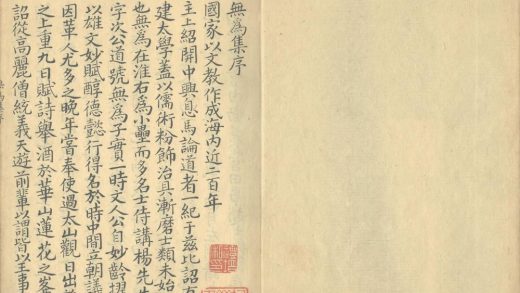 無為集序
國家以文教作成海内近二百年
主上紹開中興息馬論道者一紀于兹比詔有
建太學盖以儒術粉飾治具漸磨士類未始
也無為在淮右為小壘而多名士侍講楊先生
字次公道號無為子實一時文人公自妙齡擢
以雄文妙賦醇德懿行得名於時中間立朝議
因革人尤多之晚年當奉使過太山觀日出
之上重九日賦詩舉酒於華山蓮花之峯
詔從高麗僧統義天遊前輩以謂皆以王事